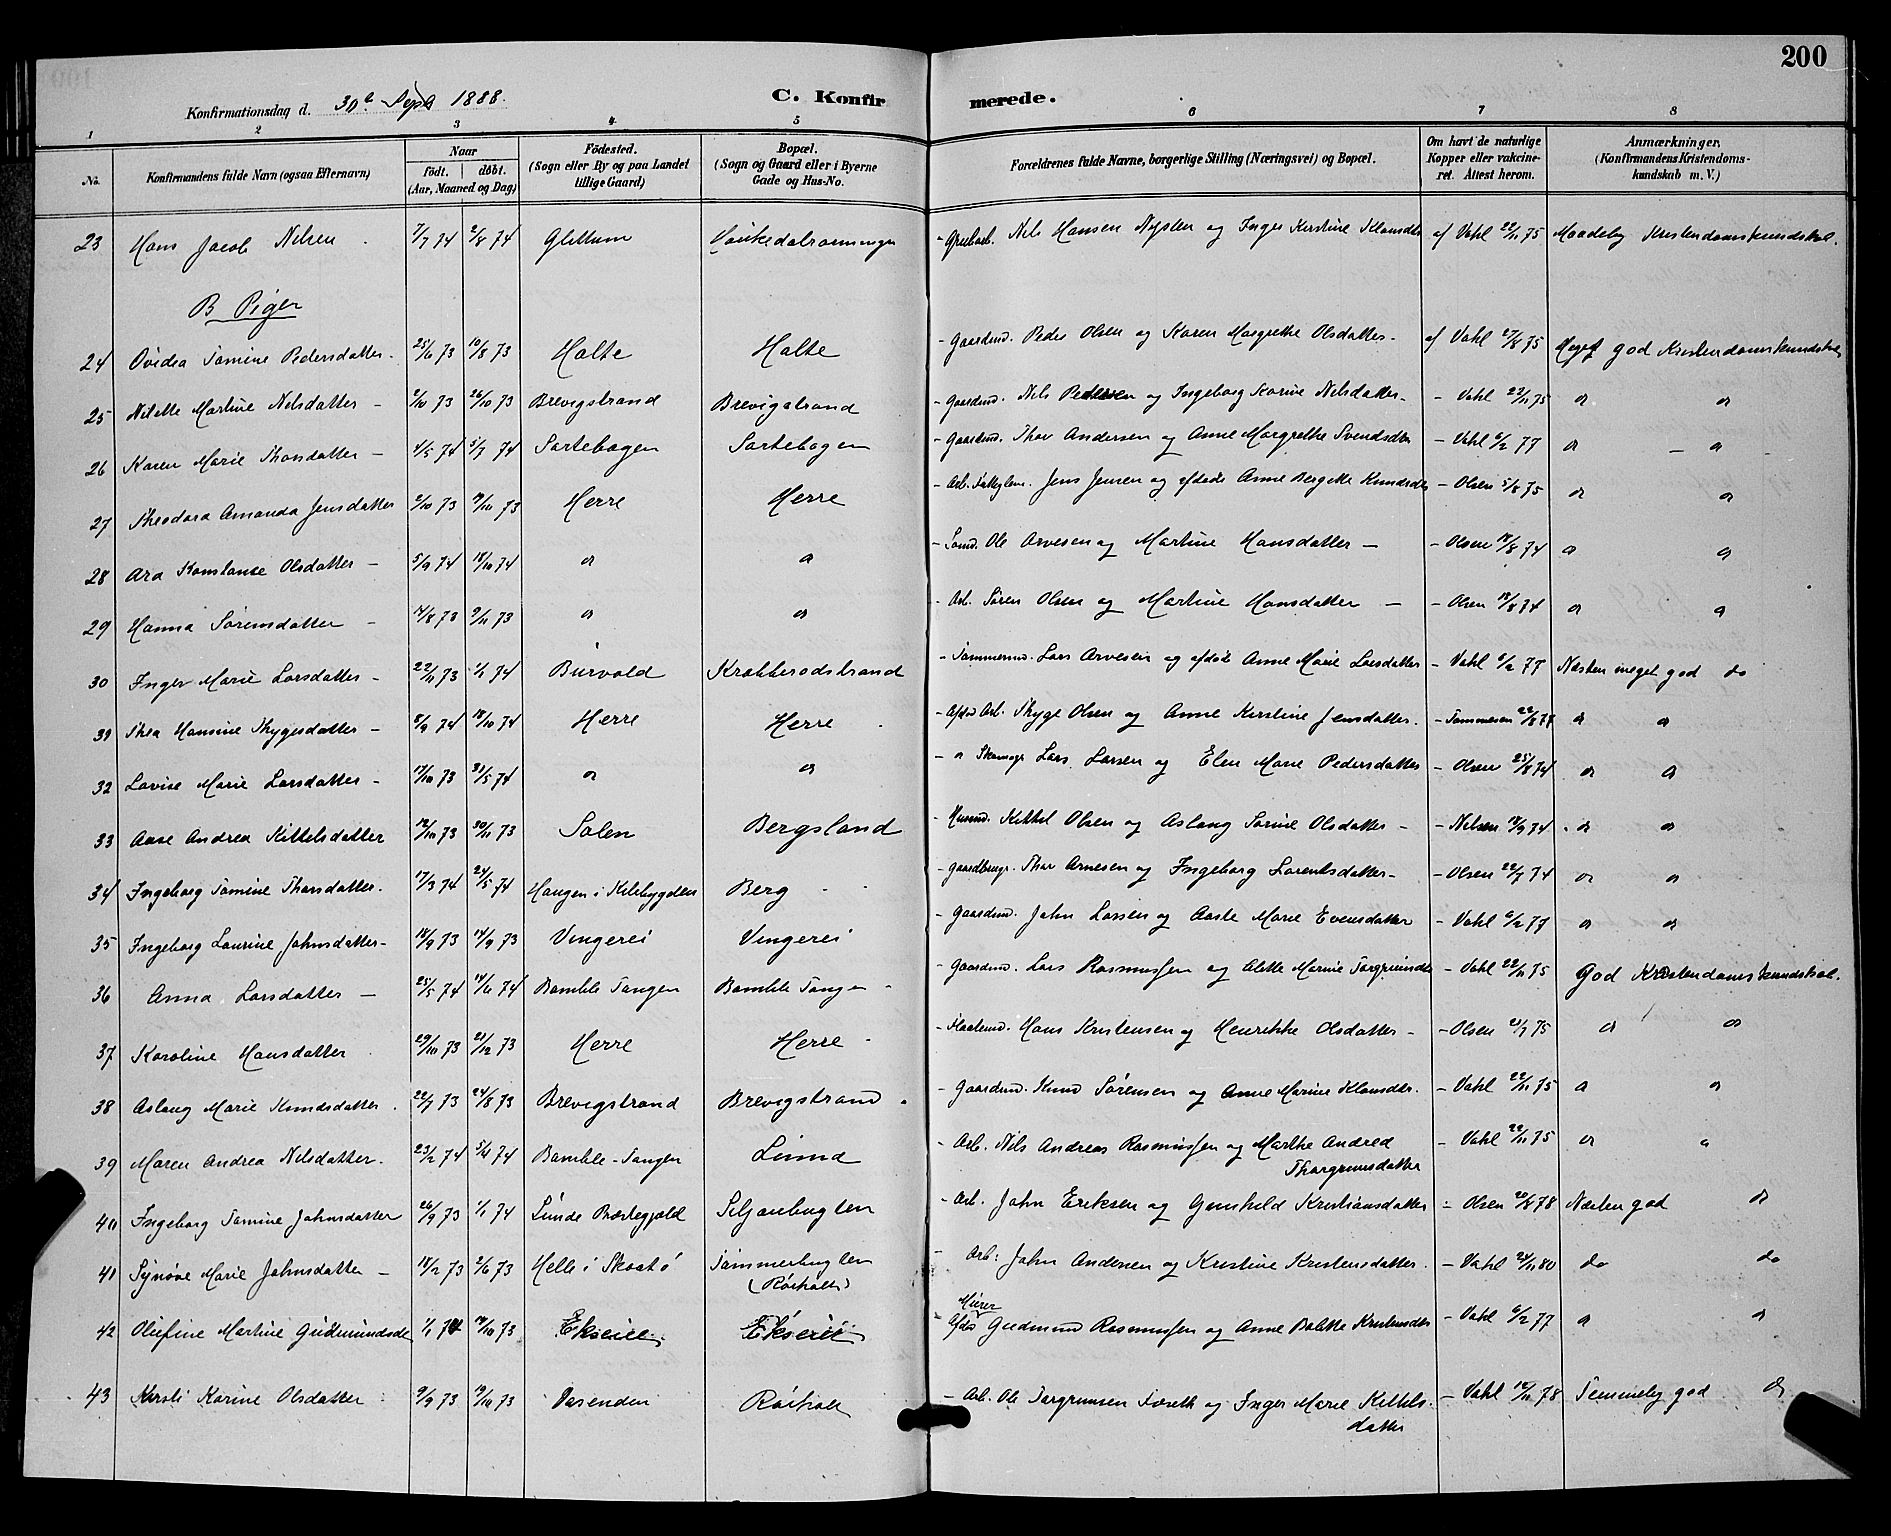 200
Konfirmationsdag d. 30te Septb 1888.
C. Konfirmerede.
1 2 3 4 5 6 7 8
No. | Konfirmandens fulde Navn (ogsaa Efternavn) | Naar født. døbt. (Aar, Maaned og Dag) | Fødested. (Sogn eller By og paa Landet tillige Gaard) | Bopæl. (Sogn og Gaard eller i Byerne Gade og Hus-No. | Forældrenes fulde Navne, borgerlige Stilling (Næringsvei) og Bopæl. | Om havt de naturlige Kopper eller vakcineret. Attest herom. | Anmærkninger. (Konfirmandens Kristendomskundskab m. V.)
23 Hans Jacob Nilsen 7/7 74 2/8 74 Glittum - Nils Hansen Nysten og Inger Kirstine Klausdtr af Vahl 22/11 75 Maadelig Kristendomskundskab.
B Piger
24 Ovidia Tomine Pedersdatter 25/6 73 10/8 73 Halte Halte - Gaardmd. Peder Olsen og Karen Margrethe Olsdatter - af Vahl 27/8 75 Meget god Kristendomskundskab
25 Nilette Martine Nilsdatter - 2/10 73 26/10 73 Brevigstrand Brevigstrand - Gaardmd. Nils Pedersen og Ingeborg Karine Nilsdatter - - Vahl 22/11 75 do do
26 Karen Marie Thorsdatter - 4/5 74 5/7 74 Sartebogen Sartebogen - Gaardmd. Thor Andersen og Anne Margrethe Svendsdtr - Vahl 6/2 77 do - do
27 Theodora Amanda Jensdatter 2/10 73 19/10 73 Herre Herre - Arb. Jens Jensen og afdøde Anne Bergitte Knudsdtr - Olsen 5/8 75 do do
28 Ara Konstanse Olsdatter - 5/9 74 18/10 74 do do - Sømd. Ole Arvesen og Martine Hansdatter - - Olsen 19/8 74 do do
29 Hanna Sørensdatter - 14/8 73 9/11 73 do do - Arb. Søren Olsen og Martine Hansdatter - - Olsen 19/8 74 do do
30 Inger Marie Larsdatter - 22/11 73 1/1 74 Burvold Krabberødstrand - Tømmermd. Lars Arvesen og afdøde Anne Marie Larsdatter - Vahl 6/2 77 Næsten meget god do
31 Thea Hansine Thygesdatter - 8/9 74 18/10 74 Herre Herre - Afdøde Arb. Thyge Olsen og Anne Kirstine Jensdatter. - Tommesen 22/8 77 do do
32 Lovise Marie Larsdatter - 17/10 73 31/5 74 do do - do Skomagr Lars Larsen og Elen Marie Pedersdatter - Olsen 25/8 74 do do
33 Aase Andrea Kittelsdatter 12/10 73 30/11 73 Solen Bergsland - Husmd. Kittel Olsen og Aslaug Sørine Olsdatter - - Nilsen 19/9 74 - do do
34 Ingeborg Tomine Thorsdatter. 17/3 74 24/5 74 Haugen i Kilebygden Berg - Gaardbrugr. Thor Arnesen og Ingeborg Larentsdatter - - Olsen 22/7 74 do do
35 Ingeborg Laurine Johnsdatter - 18/9 73 14/9 73 Vingerei Vingerei - Gaardmd. John Larsen og Aaste Marie Evensdatter - Vahl 6/2 77 do do
36 Anna Larsdatter - 25/5 74 14/6 74 Bamble Tangen Bamble Tangen - Gaardmd. Lars Rasmussen og Alette Marine Torgrimsdtr - Vahl 22/11 75 God Kristendomskundskab.
37 Karoline Hansdatter 29/10 73 21/12 73 Herre Herre - Hans Kristensen og Henrikke Olsdatter - - Olsen 21/7 75 do do
38 Aslaug Marie Knudsdatter. 22/7 73 24/8 73 Brevigstrand Brevigstrand - Gaardmd. Knud Sørensen og Anne Marine Klausdtr. - Vahl 22/11 75 do do
39 Maren Andrea Nilsdatter. 23/2 74 5/4 74 Bamble-Tangen Linna - Arb. Nils Andreas Rasmussen og Marthe Andrea - Vahl 22/11 75 do do
Thorgrimsdatter
40 Ingeborg Tomine Johnsdatter 26/9 73 1/1 74 Siljanbugten - Arb. John Eriksen og Gunhild Kristiansdatter - Olsen 20/8 78 Næsten god do
41 Synøve Marie Johnsdatter - 18/2 73 2/6 73 Helle i Skaatø Tømmerbugten - Arb: John Andersen og Kristine Kristensdatter. - Vahl 24/11 80 do do
(Rørholt)
Murer
42 Olufine Martine Gudmundsdr 1/1 74 19/10 73 Ekserie Ekserie - Afdø Gudmund Rasmussen og Anne Bolette Kristensdtr - Vahl 6/2 77 do do
43 Kirsti Karine Olsdatter 9/9 73 19/10 73 Vasenden Rørholt - Arb. Ole Torgrimsen Toseth og Inger Marie Kittels- - Vahl 10/11 78 Temmelig god do
datter